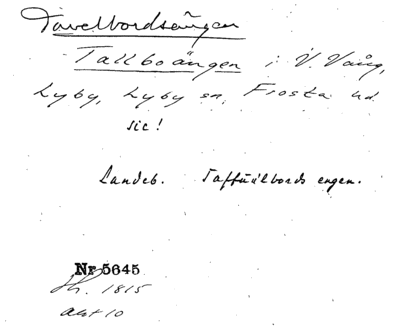 Tavelbordsängen
Tallboängen i V. Vång,
Lyby, Lyby sn, Frosta hd.
sic!
Landeb. Taffuelbords engen.
Nr 5645
1815
akt 10